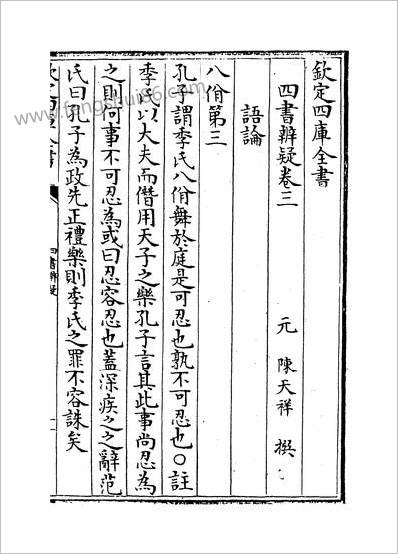 欽定四庫全書
四書辨疑卷三 元 陳天祥 撰
語論
八佾第三
孔子謂季氏八佾舞於庭是可忍也孰不可忍也○註
季氏以大夫而僭用天子之樂孔子言其此事尚忍為
之則何事不可忍為或曰忍容忍也蓋深疾之之辭范
氏曰孔子為政先正禮樂則季氏之罪不容誅矣
四書辨疑
www.fengshui86.com